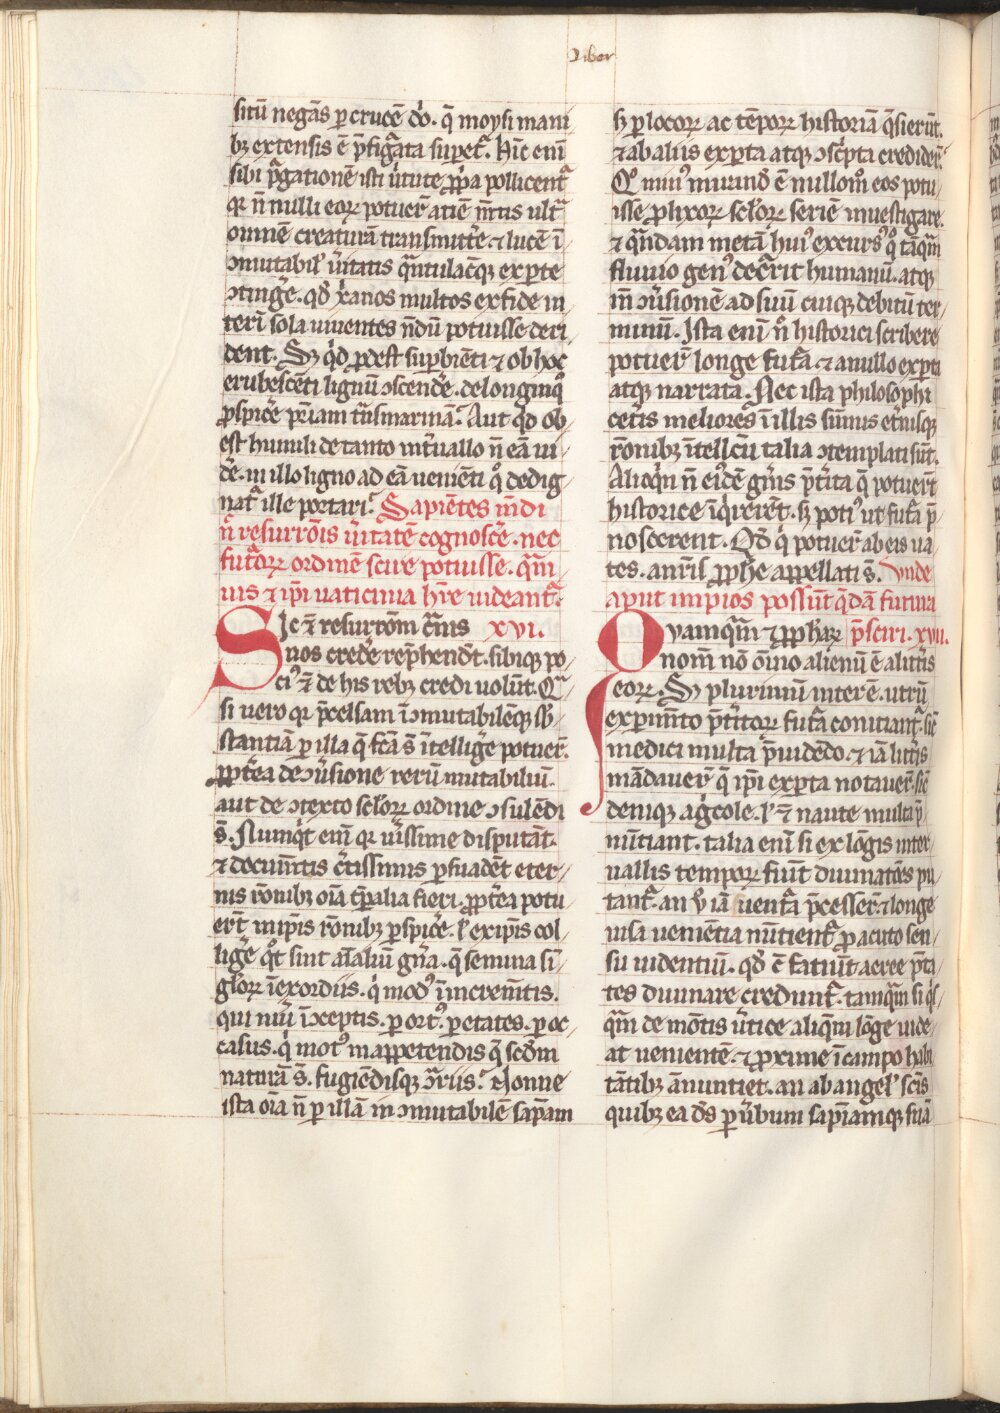 Liber
sitū negās p crucē dō. q̄ moysi mani
bꝫ extensis ē p̄figᷓata supet᷑. Hīc enī
sibi pᷓgationē isti ūtute ꝓp̄a pollicent᷑
qꝛ n̄ nulli eoꝝ potuer̄ aciē m̄tis ultᷓ
omnē creaturā transmitte᷑ ⁊ lucē ī
ꝯmutabil᷑ ūitatis qᷓntulacūqꝫ ex parte
ꝯtinge᷑. qd̄ xp̄ianos multos ex fide in
terī sola uiuentes nōdū potuisse deri
dent. Sꝫ qͥd ꝓdest supbiēti ⁊ ob hoc
erubescēti lignū ꝯscende᷑. de longinqͦ
ꝓspice᷑ pr̄iam tᷓnsmarinā. Aut qͥd ob
est humili de tanto int̄uallo n̄ eā ui
de᷑. in illo ligno ad eā ueniēti qͦ dedig
nat᷑ ille portari. Sapiētes mūdi
n̄ resurrōis ūitatē cognosce᷑. nec
futᷓoꝝ ordinē scire potuisse. qᷓm
uis ⁊ ip̄i uaticinia hr̄e uideant᷑.
Sic ⁊̄ resurrōm carnis xvi.
nos crede᷑ rep̄hendūt. sibiqꝫ po
ciꝰ ⁊̄ de his rebꝫ credi uolūt. Qᷓ
si uero qꝛ p̄celsam īꝯmutabilēqꝫ sb̄
stantiā p illa q̄ fc̄a s̄ ītellige᷑ potuer̄.
ꝓpt̄ea de ꝯu̇sione rerū mutabiliū.
aut de ꝯtexto sc̄loꝝ ordine ꝯsulēdi
s̄. Nūqͥt eni᷑ qꝛ uīssime disputāt.
⁊ documētis c̄tissimis psuadēt eter
nis rōnibꝫ oīa tp̄alia fieri. ꝓpt̄ea potu
er̄t in ip̄is rōnibꝫ ꝓspice᷑. ł ex ip̄is col
lige᷑ qͦt sint aīaliū gn̄a. q̄ semina sī
gloꝝ ī exordiis. qͥ modꝰ ī incremētis.
qui nūi ī ꝯceptis. p ortꝰ. p etates. p oc
casus. qͥ motꝰ in appetendis q̄ scd̄m
naturā s̄. fugiēdisqꝫ ꝯtrariis. Nonne
ista oīa n̄ p illā inꝯmutabilē sap̄iam
sꝫ p locoꝝ ac tēpoꝝ historiā q̄sierūt.
⁊ ab aliis expta atqꝫ ꝯscⁱpta credider̄.
Qͦ minꝰ mirand᷑ ē nullomō eos potu
isse ꝓlixoꝝ sc̄loꝝ seriē inuestigare.
⁊ qᷓndam metā huiꝰ excursꝰ qͦ tāqᷓm
fluuio genꝰ dec̄rit humanū. atqꝫ
īn ꝯu̇sionē ad suū cuiqꝫ debitū ter
minū. Ista eni᷑ n̄ historici scribere
potuer̄ longe fut̄a ⁊ a nullo expta
atqꝫ narrata. Nec ista philosophi
cetis meliores ī illis sūmis et̄nisqꝫ
rōnibꝫ ītellc̄u talia ꝯtemplati sūt.
Alioqͥn n̄ eiꝰdē gn̄is p̄t̄ita q̄ potuer̄t
historice īqͥrerēt. sꝫ potiꝰ ut fut̄a p̄
noscerent. Qd̄ qͥ potuer̄ ab eis ua
tes. a nr̄is ꝓphe appellati s̄. Vnde
aput impios possūt q̄dā futura
p̄sciri. xvii.
Qvamqᷓm ⁊ ꝓphaꝝ
nom̄ nō oīno alienū ē a litt̄is
eoꝝ. Sꝫ plurimū inter ē. utrū
experimēto p̄t̄itoꝝ fut̄a coniciant᷑. sic̄
medici multa p̄uidēdo. ⁊ iā litt̄is
mādauer̄ q̄ ip̄i expta notauer̄. sic̄
deniqꝫ agͥcole. ł ⁊̄ naute multa p̄
nūtiant. talia eni᷑ si ex lōgis inter
uallis tempoꝝ fiūt diuinatōes pu
tant᷑. an ỻ iā uent̄a p̄cesser̄. ⁊ longe
uisa ueniētia nūtient᷑ ꝓ acuto sen
su uidentiū. qd̄ c̄ fatiūt aeree p̄ta
tes diuinare credunt᷑. tamqᷓm si qͥs
qᷓm de mōtis ūtice aliqᷓm lōge uide
at uenientē. ⁊ ꝓxime ī campo habi
tātibꝫ ānuntiet. an ab angel᷑ sc̄is
quibꝫ ea dꝰs p ūbum sap̄iamqꝫ suā